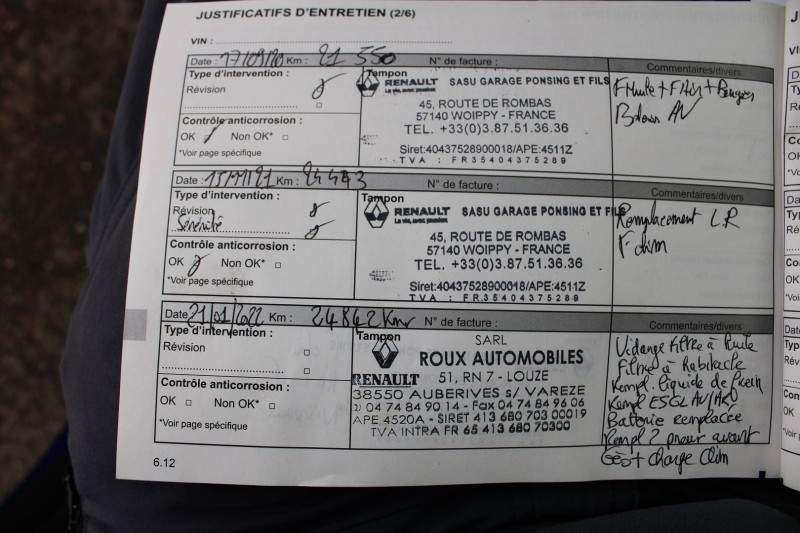 JUSTIFICATIFS D'ENTRETIEN (2/6)
VIN :
Date : 17/09/20 Km : 21 550 N° de facture :
Commentaires/divers
Type d'intervention :
Révision
Contrôle anticorrosion :
OK Non OK*
*Voir page spécifique
Tampon
RENAULT SASU GARAGE PONSING ET FILS
La vie, avec passion
45, ROUTE DE ROMBAS
57140 WOIPPY - FRANCE
TEL. +33(0)3.87.51.36.36
Siret:40437528900018/APE:4511Z
TVA : FR35404375289
FHuile + FHab + Bougies
Balais AV
Date : 15/11/21 Km : 24443 N° de facture :
Commentaires/divers
Type d'intervention :
Révision
Sérénité
Contrôle anticorrosion :
OK Non OK*
*Voir page spécifique
Tampon
RENAULT SASU GARAGE PONSING ET FILS
La vie, avec passion
45, ROUTE DE ROMBAS
57140 WOIPPY - FRANCE
TEL. +33(0)3.87.51.36.36
Siret:40437528900018/APE:4511Z
TVA : FR35404375289
Remplacement L.R
Date 21/01/2022 Km : 24842Km N° de facture :
Commentaires/divers
Type d'intervention :
Révision
Contrôle anticorrosion :
OK Non OK*
*Voir page spécifique
Tampon
SARL
ROUX AUTOMOBILES
RENAULT 51, RN 7 - LOUZE
38550 AUBERIVES s/ VAREZE
04 74 84 90 14 - Fax 04 74 84 96 06
APE 4520A - SIRET 413 680 703 00019
TVA INTRA FR 65 413 680 70300
Vidange filtre à huile
Filtre à habitacle
Rempl. liquide de frein
Rempl ESGL AV/AR
Batterie remplacée
Rempl 2 pneus avant
Gest charge Clim
6.12